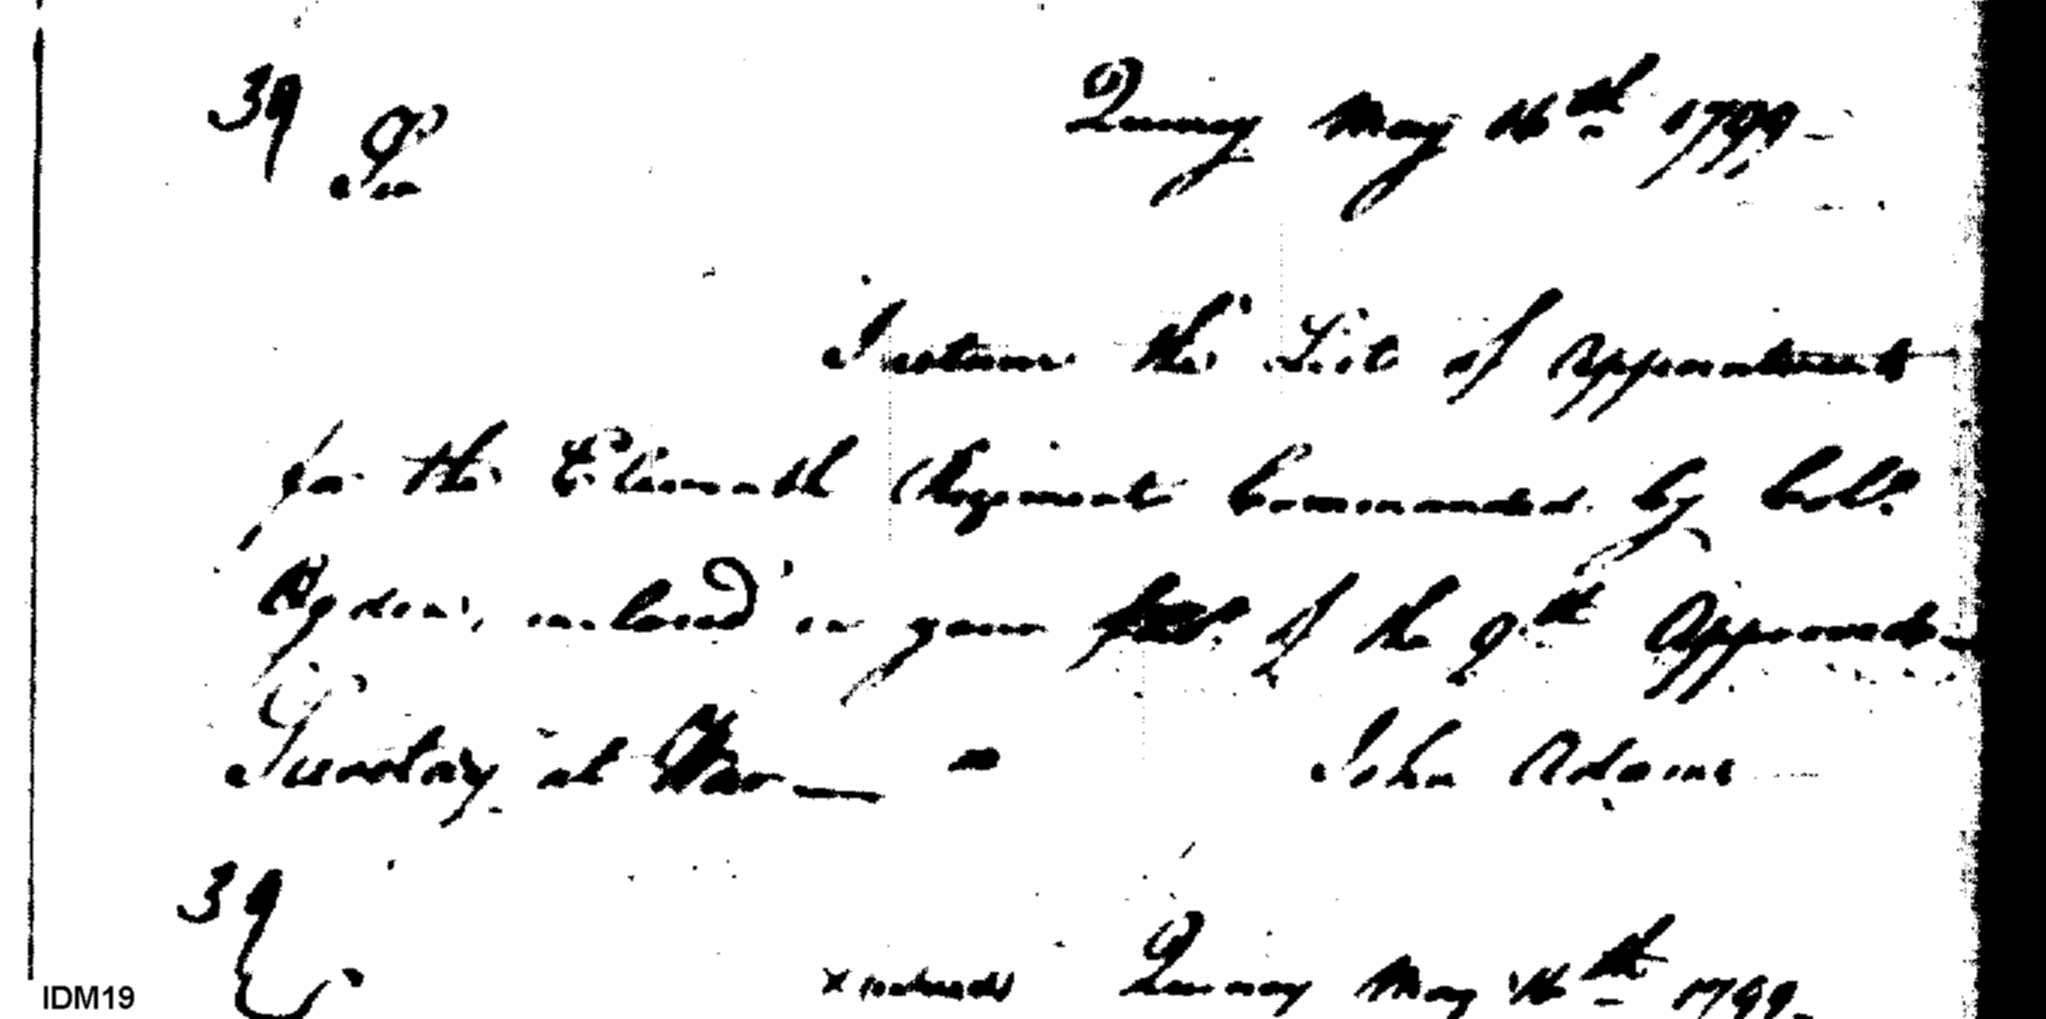 39 Quincy May 16th 1799
Sir
I return the List of Appointments
for the Eleventh Regiment Commanded by Coll.
Ogden, inclosed in your of the 9th Approved
Secretary at War — John Adams
39
Quincy May 16th 1799
IDM19